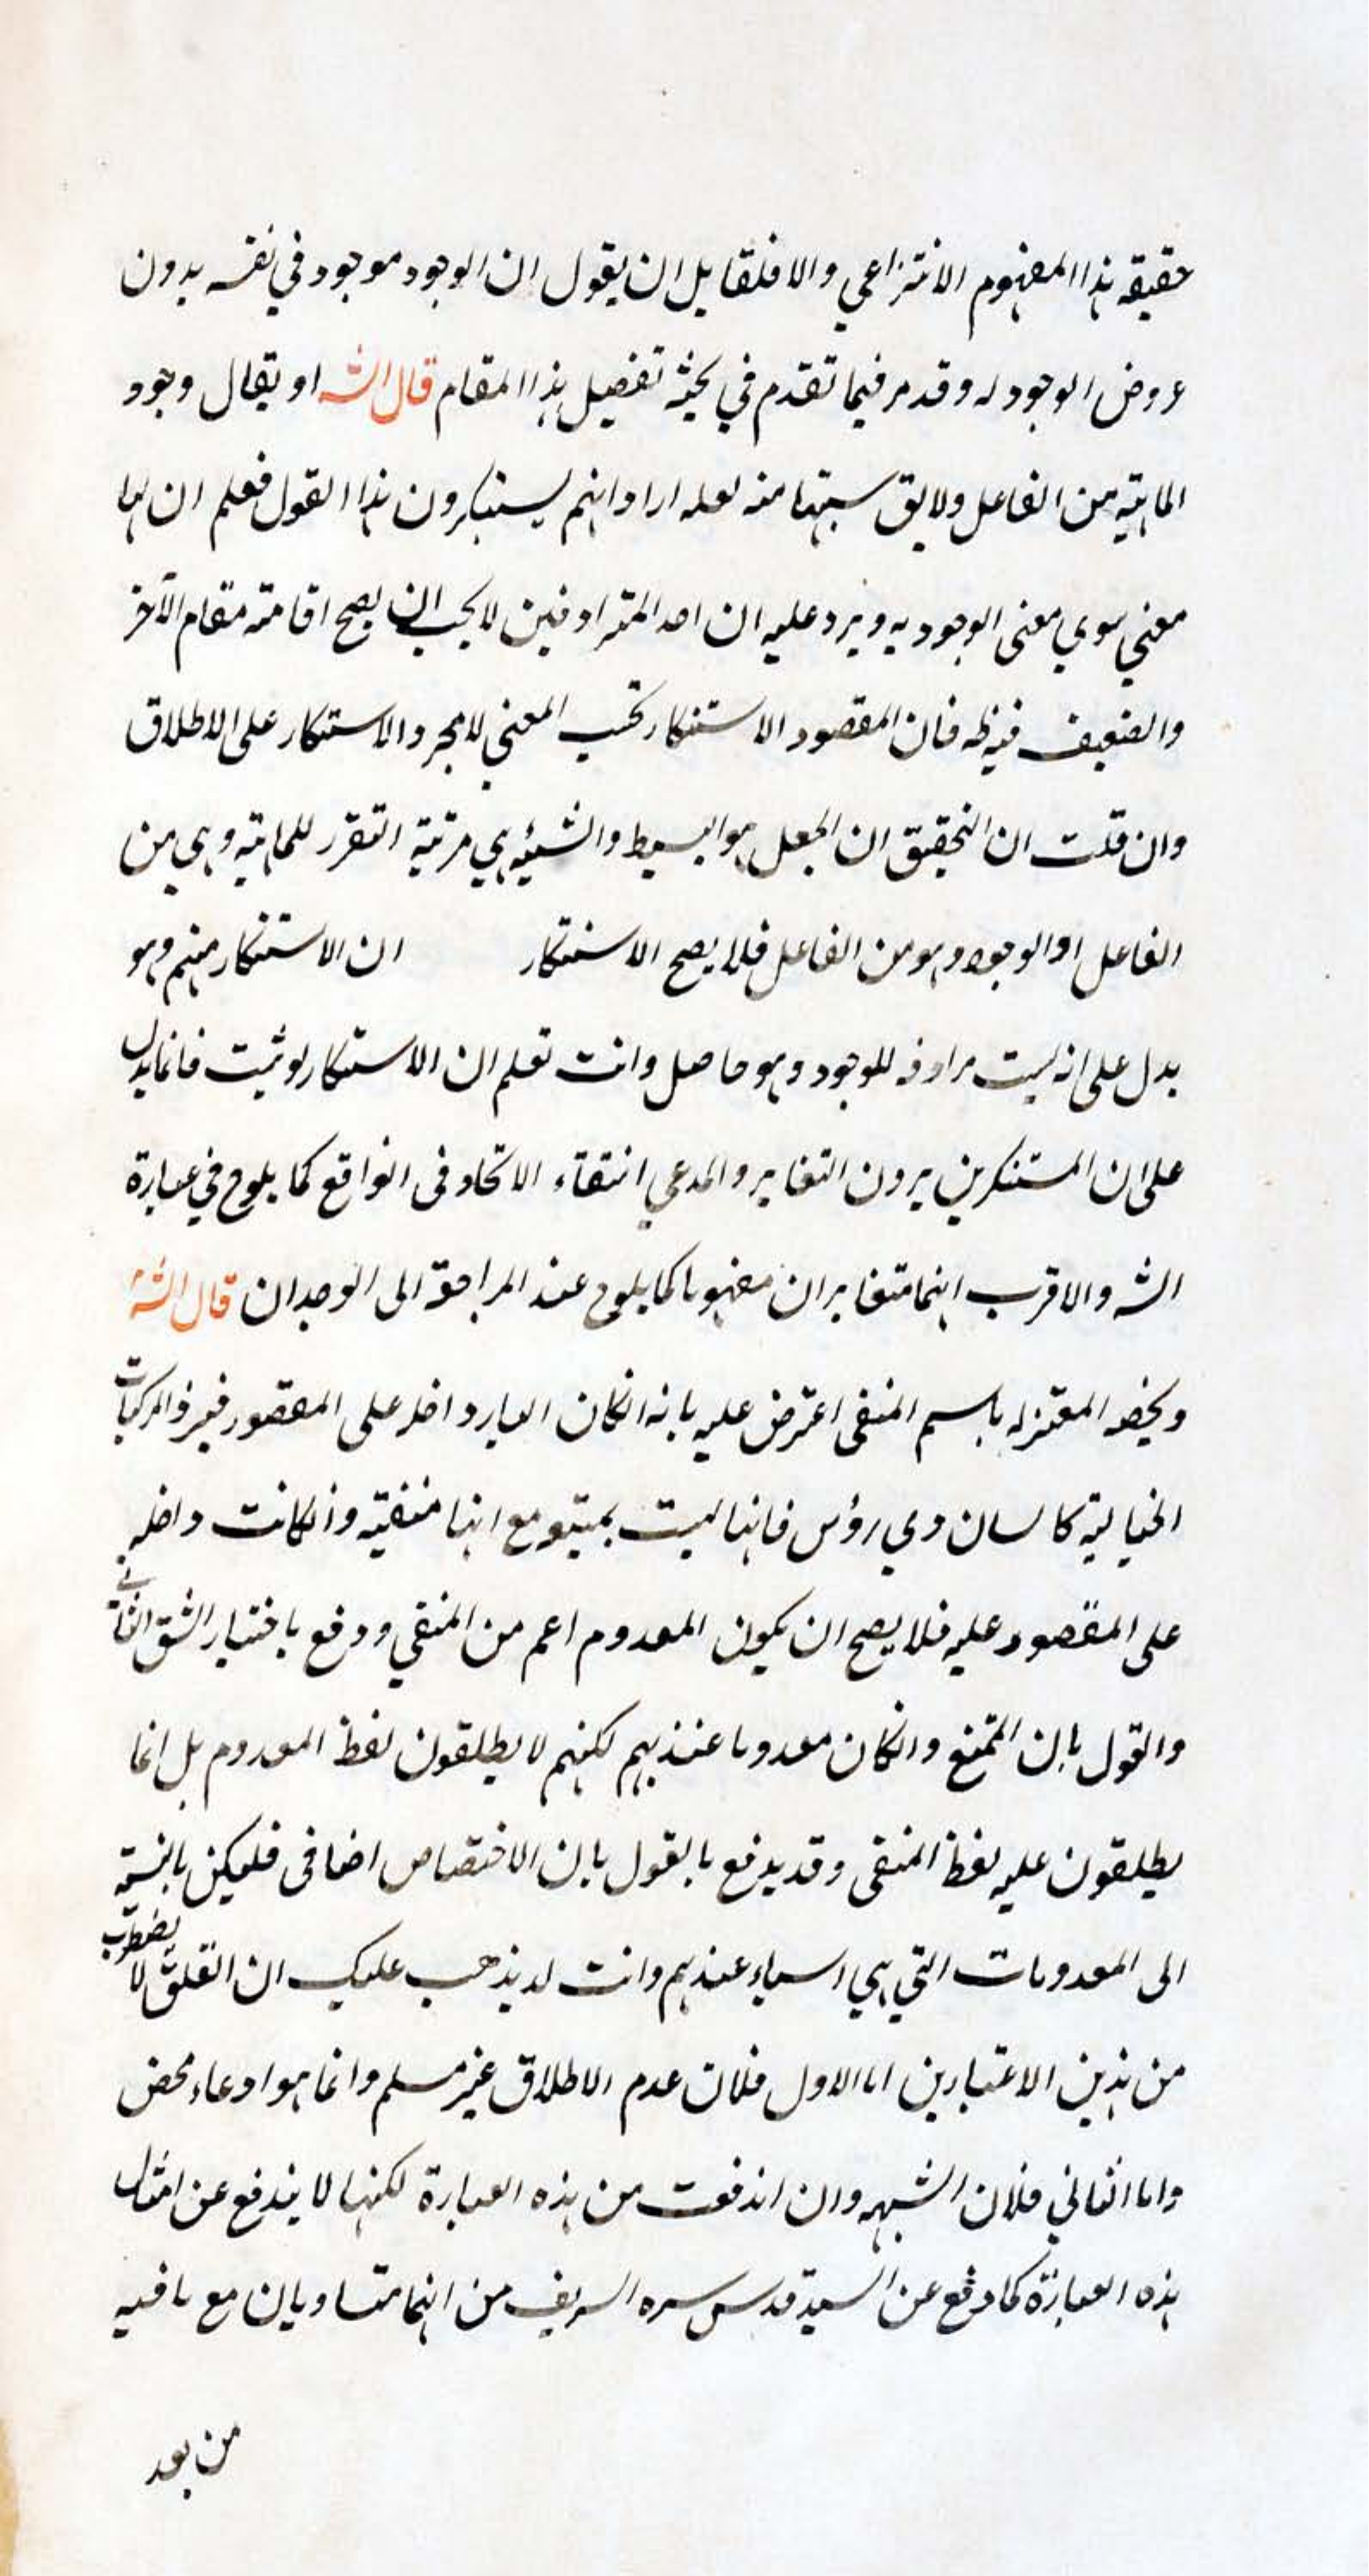 حقيقه هذا المفهوم الانتزاعي والا فلقايل ان يقول ان الوجود موجود في نفسه بدون
عروض الوجود له وقد مر فيما تقدم في بحثه تفصيل هذا المقام قال الشه او يقال وجود
الماهيه من الفاعل ولا يق شيئيتها منه لعله اراد انهم يستنكرون هذا القول فعلم ان لها
معني سوي معنى الوجود به ويرد عليه ان احد المترادفين لا يجب ان يصح اقامته مقام الآخر
والضعيف فيه ظه فان المقصود الاستنكار بحسب المعني لا مجرد الاستنكار على الاطلاق
وان قلت ان التحقيق ان الجعل هو البسيط والشيئيه هي مرتبة التقرر للماهيه وهي من
الفاعل او الوجود وهو من الفاعل فلا يصح الاستنكار ان الاستنكار منهم وهو
يدل على انه ليست مرادفه للوجود وهو حاصل وانت تعلم ان الاستنكار لو ثبت فانما يدل
على ان المستنكرين يرون التغاير والمدعي انتقاء الاتحاد فى الواقع كما يلوح في عبارة
الشه والاقرب انهما متغايران مفهوما كما يلوح عند المراجعة الى الوجدان قال الشه
ويخصه المعتزله باسم المنفى اعترض عليه بانه انكان الباء داخله على المقصور فيرد المركبات
الخياليه كانسان ذي رؤس فانها ليست بممتنعه مع انها منفيه وانكانت داخله
على المقصور عليه فلا يصح ان يكون المعدوم اعم من المنفي ودفع باختيار الشق الثاني
والقول بان الممتنع وانكان معدوما عندهم لكنهم لا يطلقون لفظ المعدوم بل انما
يطلقون عليه لفظ المنفى وقد يدفع بالقول بان الاختصاص اضافى فليكن بالنسبة
الى المعدومات التي هي اسماء عندهم وانت لا يذهب عليك ان القلق لا يضطرب
من هذين الاعتبارين اما الاول فلان عدم الاطلاق غير مسلم وانما هو ادعاء محض
واما الثاني فلان الشبهه وان اندفعت من هذه العبارة لكنها لا يندفع عن امثال
هذه العبارة كما وقع عن السيد قدس سره الشريف من انهما متساويان مع ما فيه
من بعد